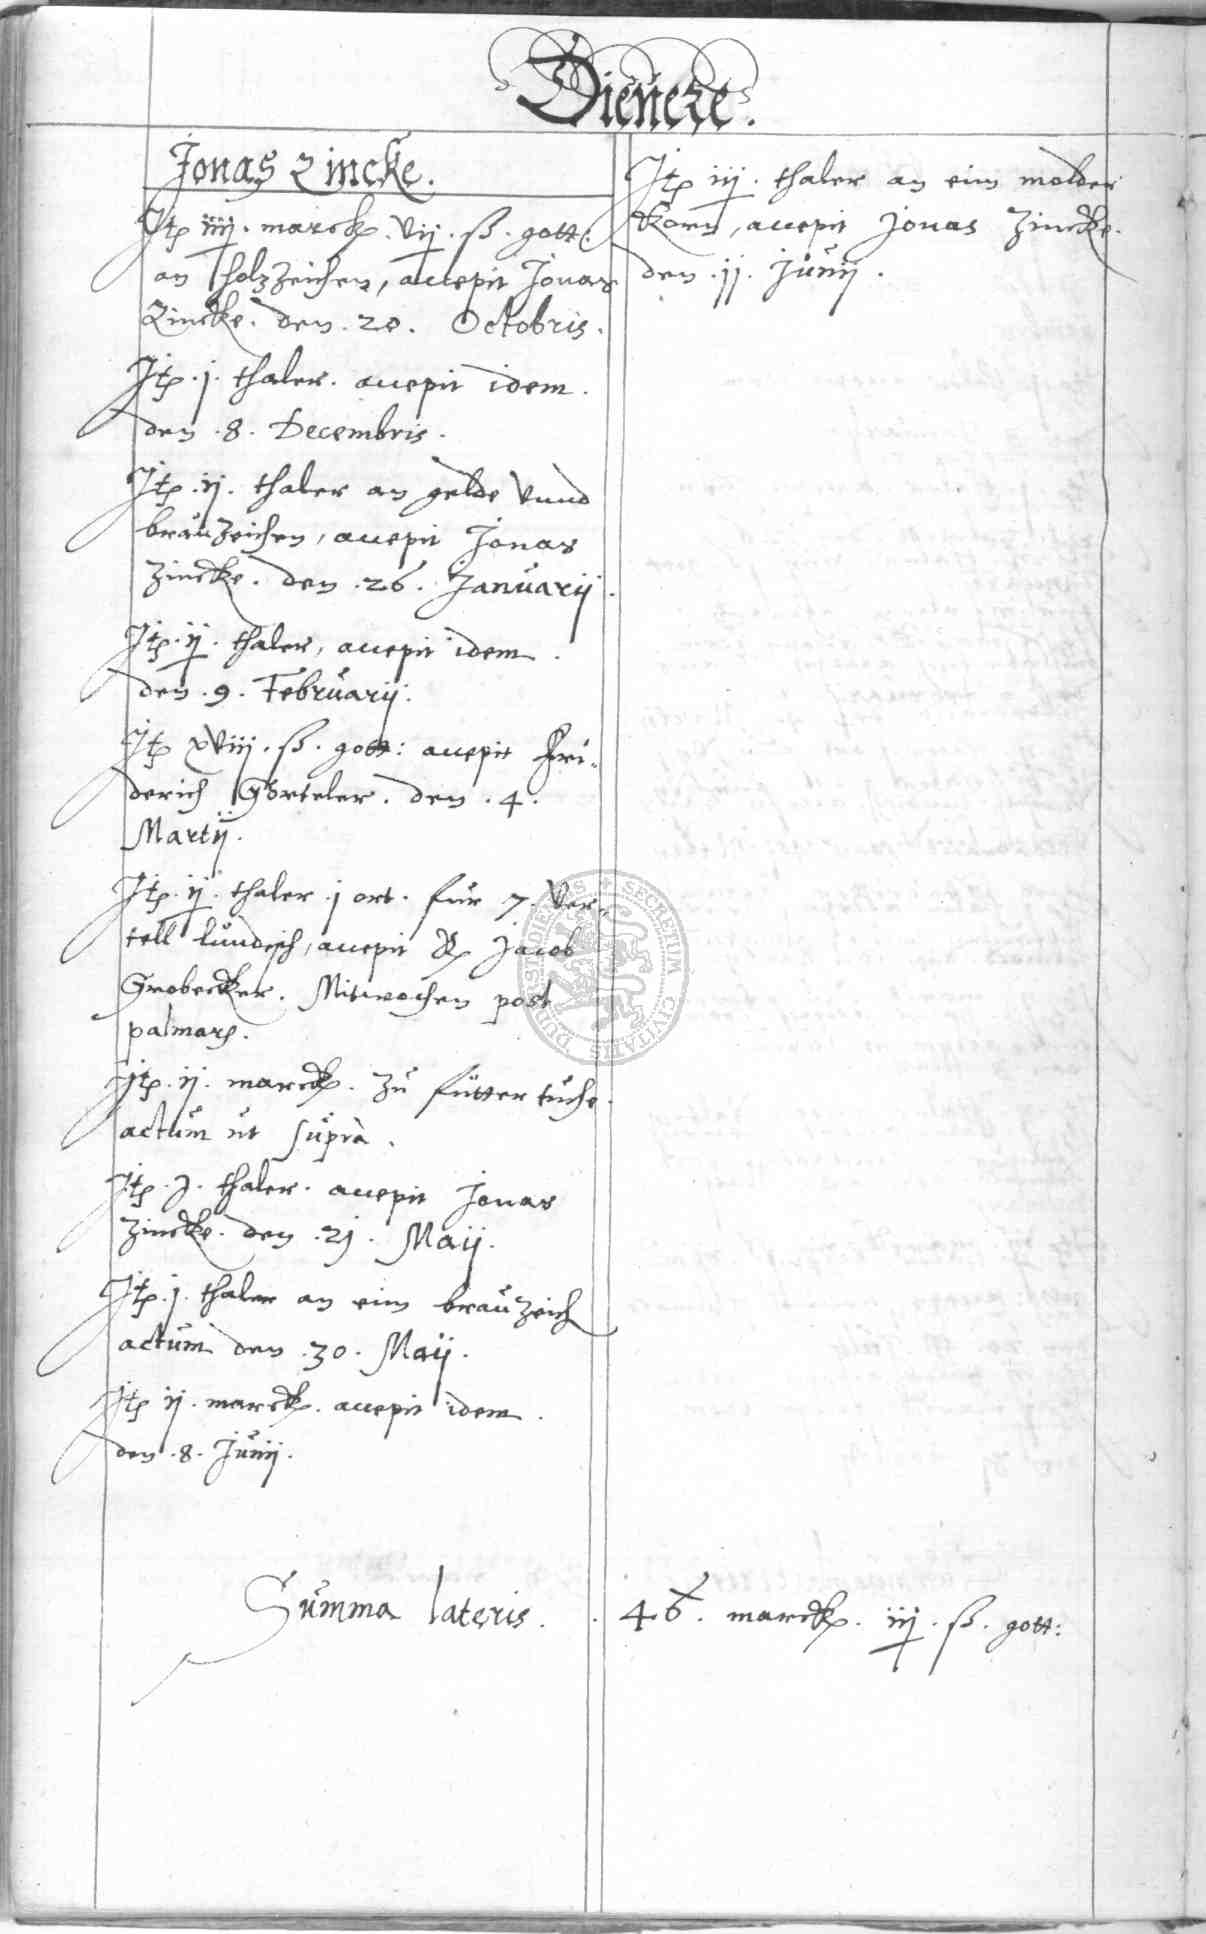 Dienere.
Jonas Zincke.
Itp iiij. marck. vij. ß. gott:
an holzzeichen, accepit Jonas
Zincke. den. 20. Octobris.
Itp. j. thaler. accepit idem.
den. 8. Decembris.
Itp. ij. thaler an gelde vnnd
brauzeichen, accepit Jonas
Zincke. den. 26. Januarij.
Itp. ij. thaler, accepit idem.
den. 9. Februarij.
Itp xviij. ß. gott: accepit Fri-
derich Görteler. den. 4.
Martij.
Itp. ij. thaler. j ort. für 7. ver-
tell lundisch, accepit Jacob
Grobecker. Mitwochen post
palmarū.
Itp. ij. marck. zu füttertuche.
actum ut supra.
Itp. j. thaler. accepit Jonas
Zincke. den. 2j. Maij.
Itp. j. thaler an eim brauzeich
actum den. 30. Maij.
Itp ij. marck. accepit idem.
den. 8. Junij.
Itp iij. thaler an eim molder
Korn, accepit Jonas Zincke.
den. jj. Junij.
Summa lateris. 46. marck. iij. ß. gott:
SECRETUM CIVITATIS